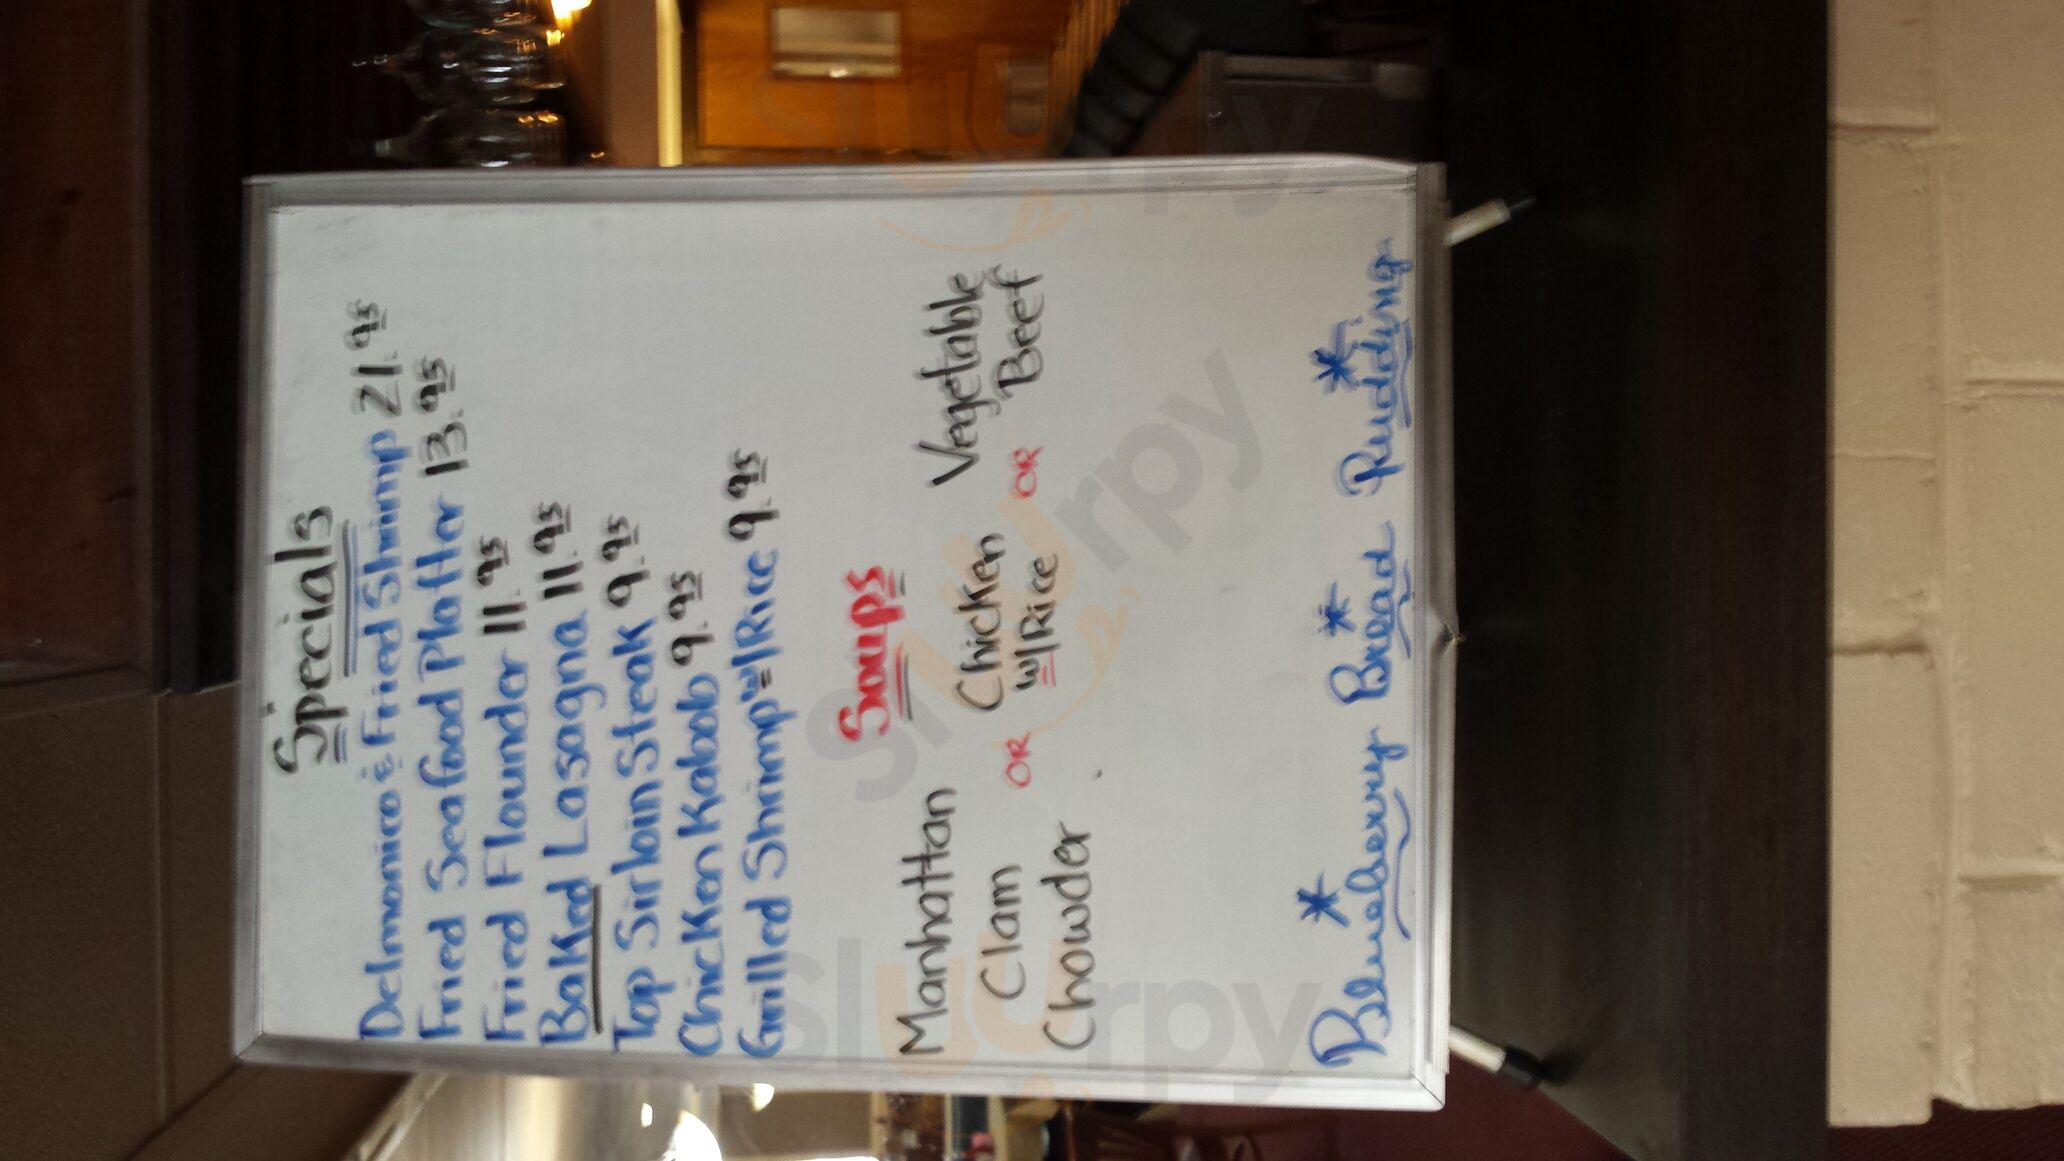 Specials
Delmonico & Fried Shrimp 21.95
Fried Seafood Platter 13.95
Fried Flounder 11.95
Baked Lasagna 11.95
Top Sirloin Steak 9.95
Chicken Kabob 9.95
Grilled Shrimp w/Rice 9.95
Soups
Manhattan Clam Chowder
OR
Chicken w/Rice
OR
Vegetable Beef
* * *
Blueberry Bread Pudding
Sluurpy
Sluurpy
Sluurpy